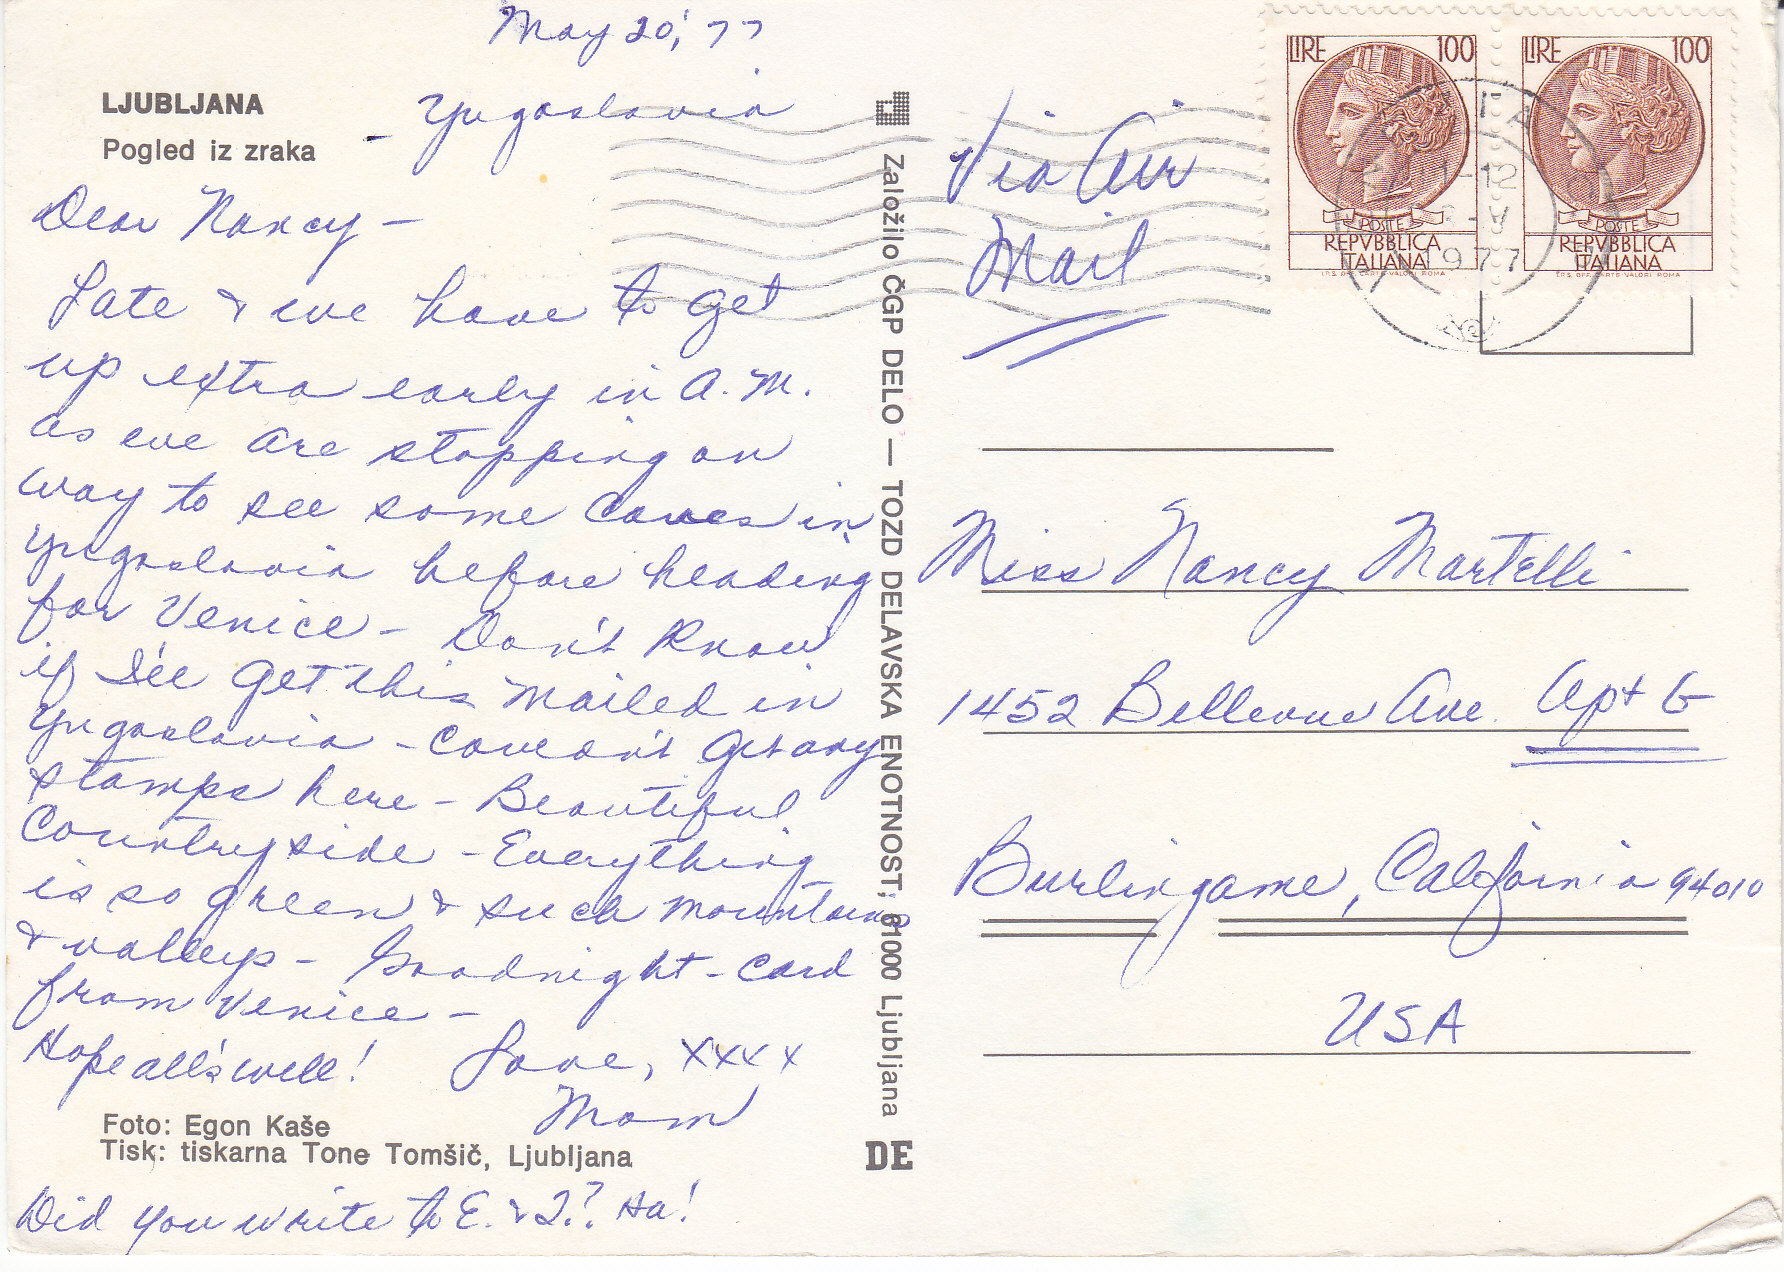 May 20, '77
LJUBLJANA
Pogled iz zraka
- Yugoslavia
Dear Nancy -
Late & we have to get
up extra early in A.M.
as we are stopping on
way to see some caves in
Yugoslavia before heading
for Venice - Don't know
if I'll get this mailed in
Yugoslavia - couldn't get any
stamps here - Beautiful
Countryside - Everything
is so green & such mountains
& valleys - Goodnight - card
from Venice -
Hope all's well! Love, xxxx
Mom
Foto: Egon Kaše
Tisk: tiskarna Tone Tomšič, Ljubljana
Did you write to E. & ? Ha!
Založilo ČGP DELO — TOZD DELAVSKA ENOTNOST, 61000 Ljubljana
DE
Via Air
Mail
LIRE 100
POSTE
REPVBBLICA
ITALIANA
I.P.S. OFF. CARTE-VALORI ROMA
LIRE 100
POSTE
REPVBBLICA
ITALIANA
I.P.S. OFF. CARTE-VALORI ROMA
-12
1977
Miss Nancy Martelli
1452 Bellevue Ave. Apt G
Burlingame, California 94010
USA